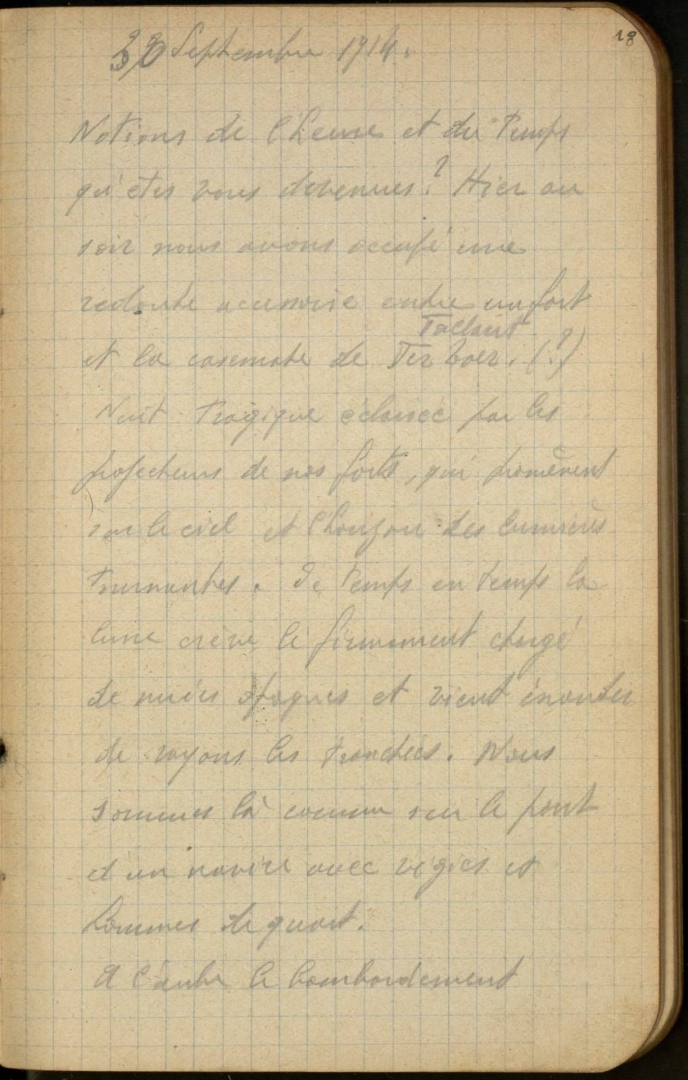 18
30 Septembre 1914.
Notions de l'heure et du temps
qu'êtes vous devenues? Hier au
soir nous avons occupé une
redoute accessoire entre un fort
Tallaert
et la casemate de Ter boer. (?)
Nuit tragique éclairée par les
projecteurs de nos forts, qui promènent
sur le ciel et l'horizon des lumières
tournantes. De temps en temps la
lune crève le firmament chargé
de nuées opaques et vient inonder
de rayons les tranchées. Nous
sommes là comme sur le pont
d'un navire avec vigies et
hommes de quart.
A l'aube le bombardement